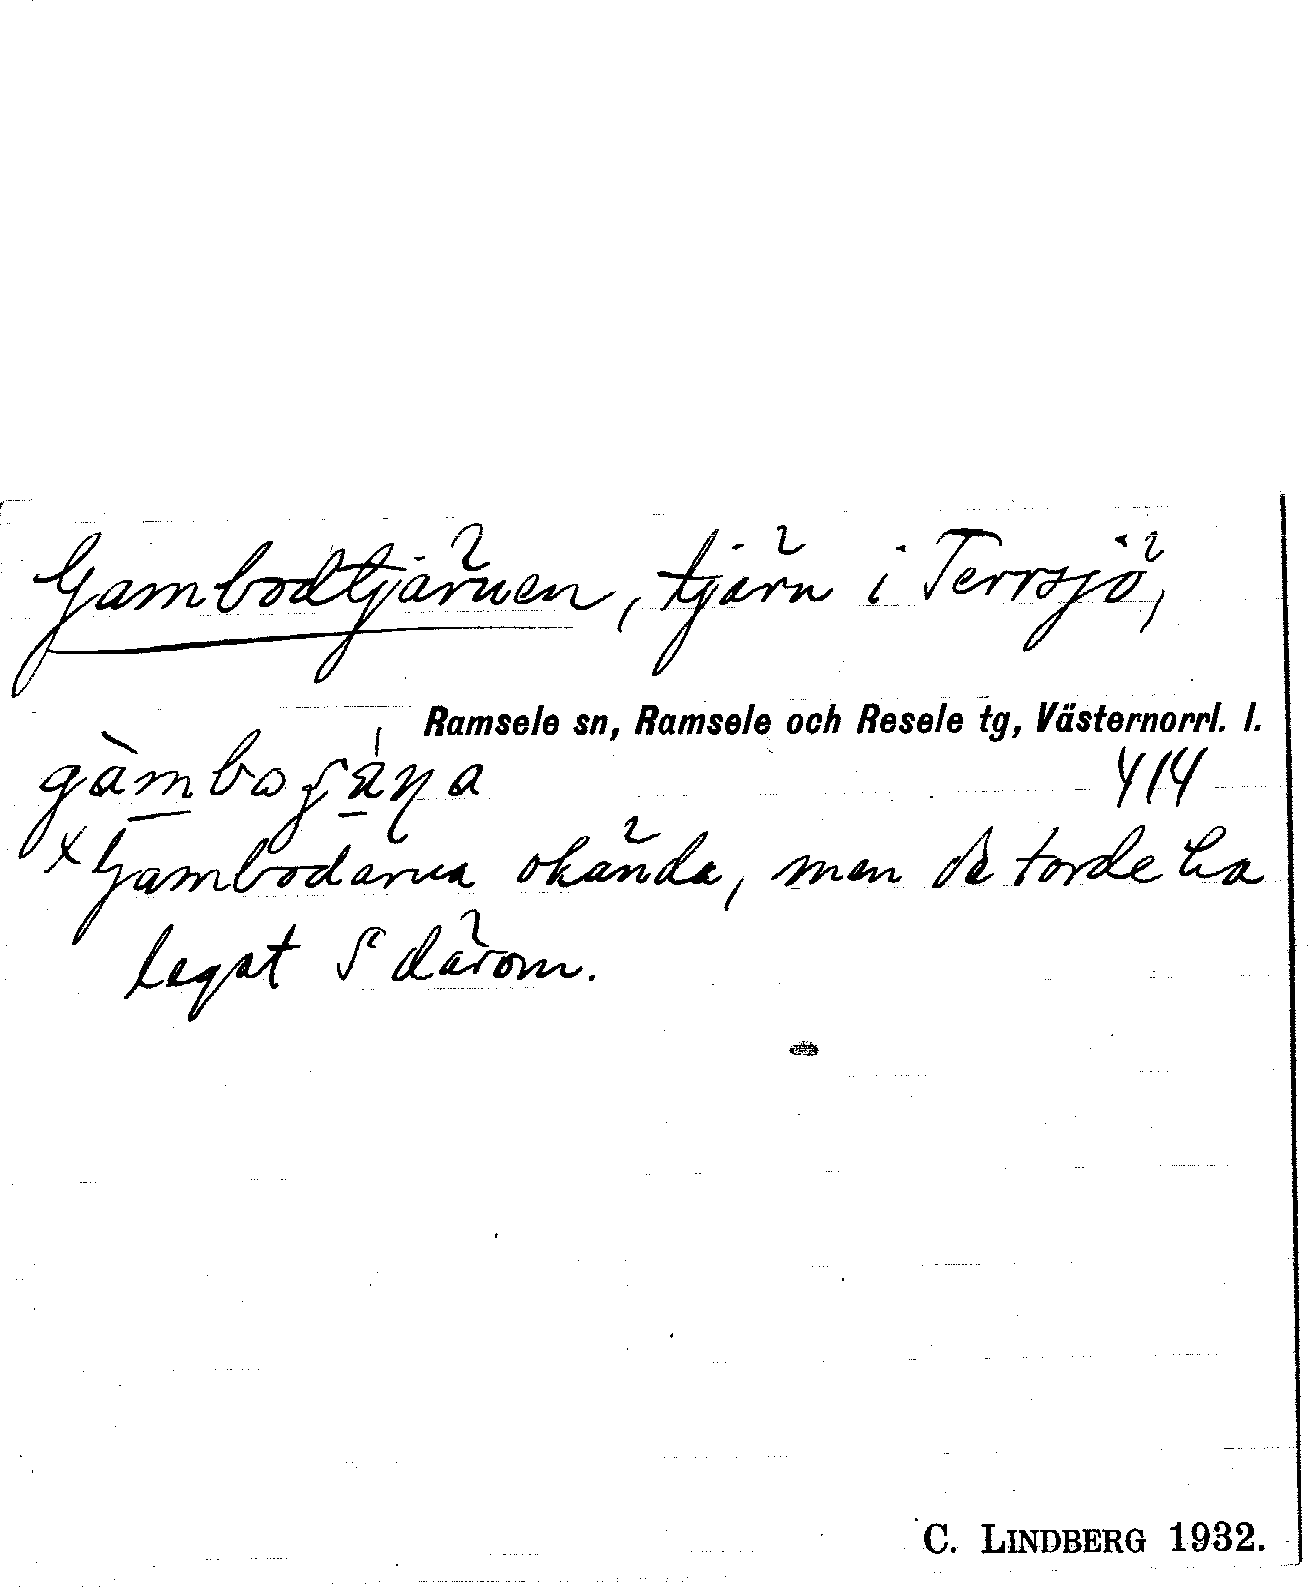 Gambodtjärnen, tjärn i Terrsjö,
Ramsele sn, Ramsele och Resele tg, Västernorrl. l.
414
x Gambodarna okända, men de torde ha
legat S därom.
C. LINDBERG 1932.